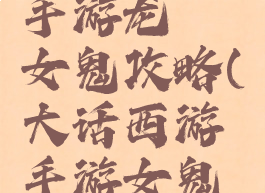 手游龙
女鬼攻略(
大话西游
手游女鬼